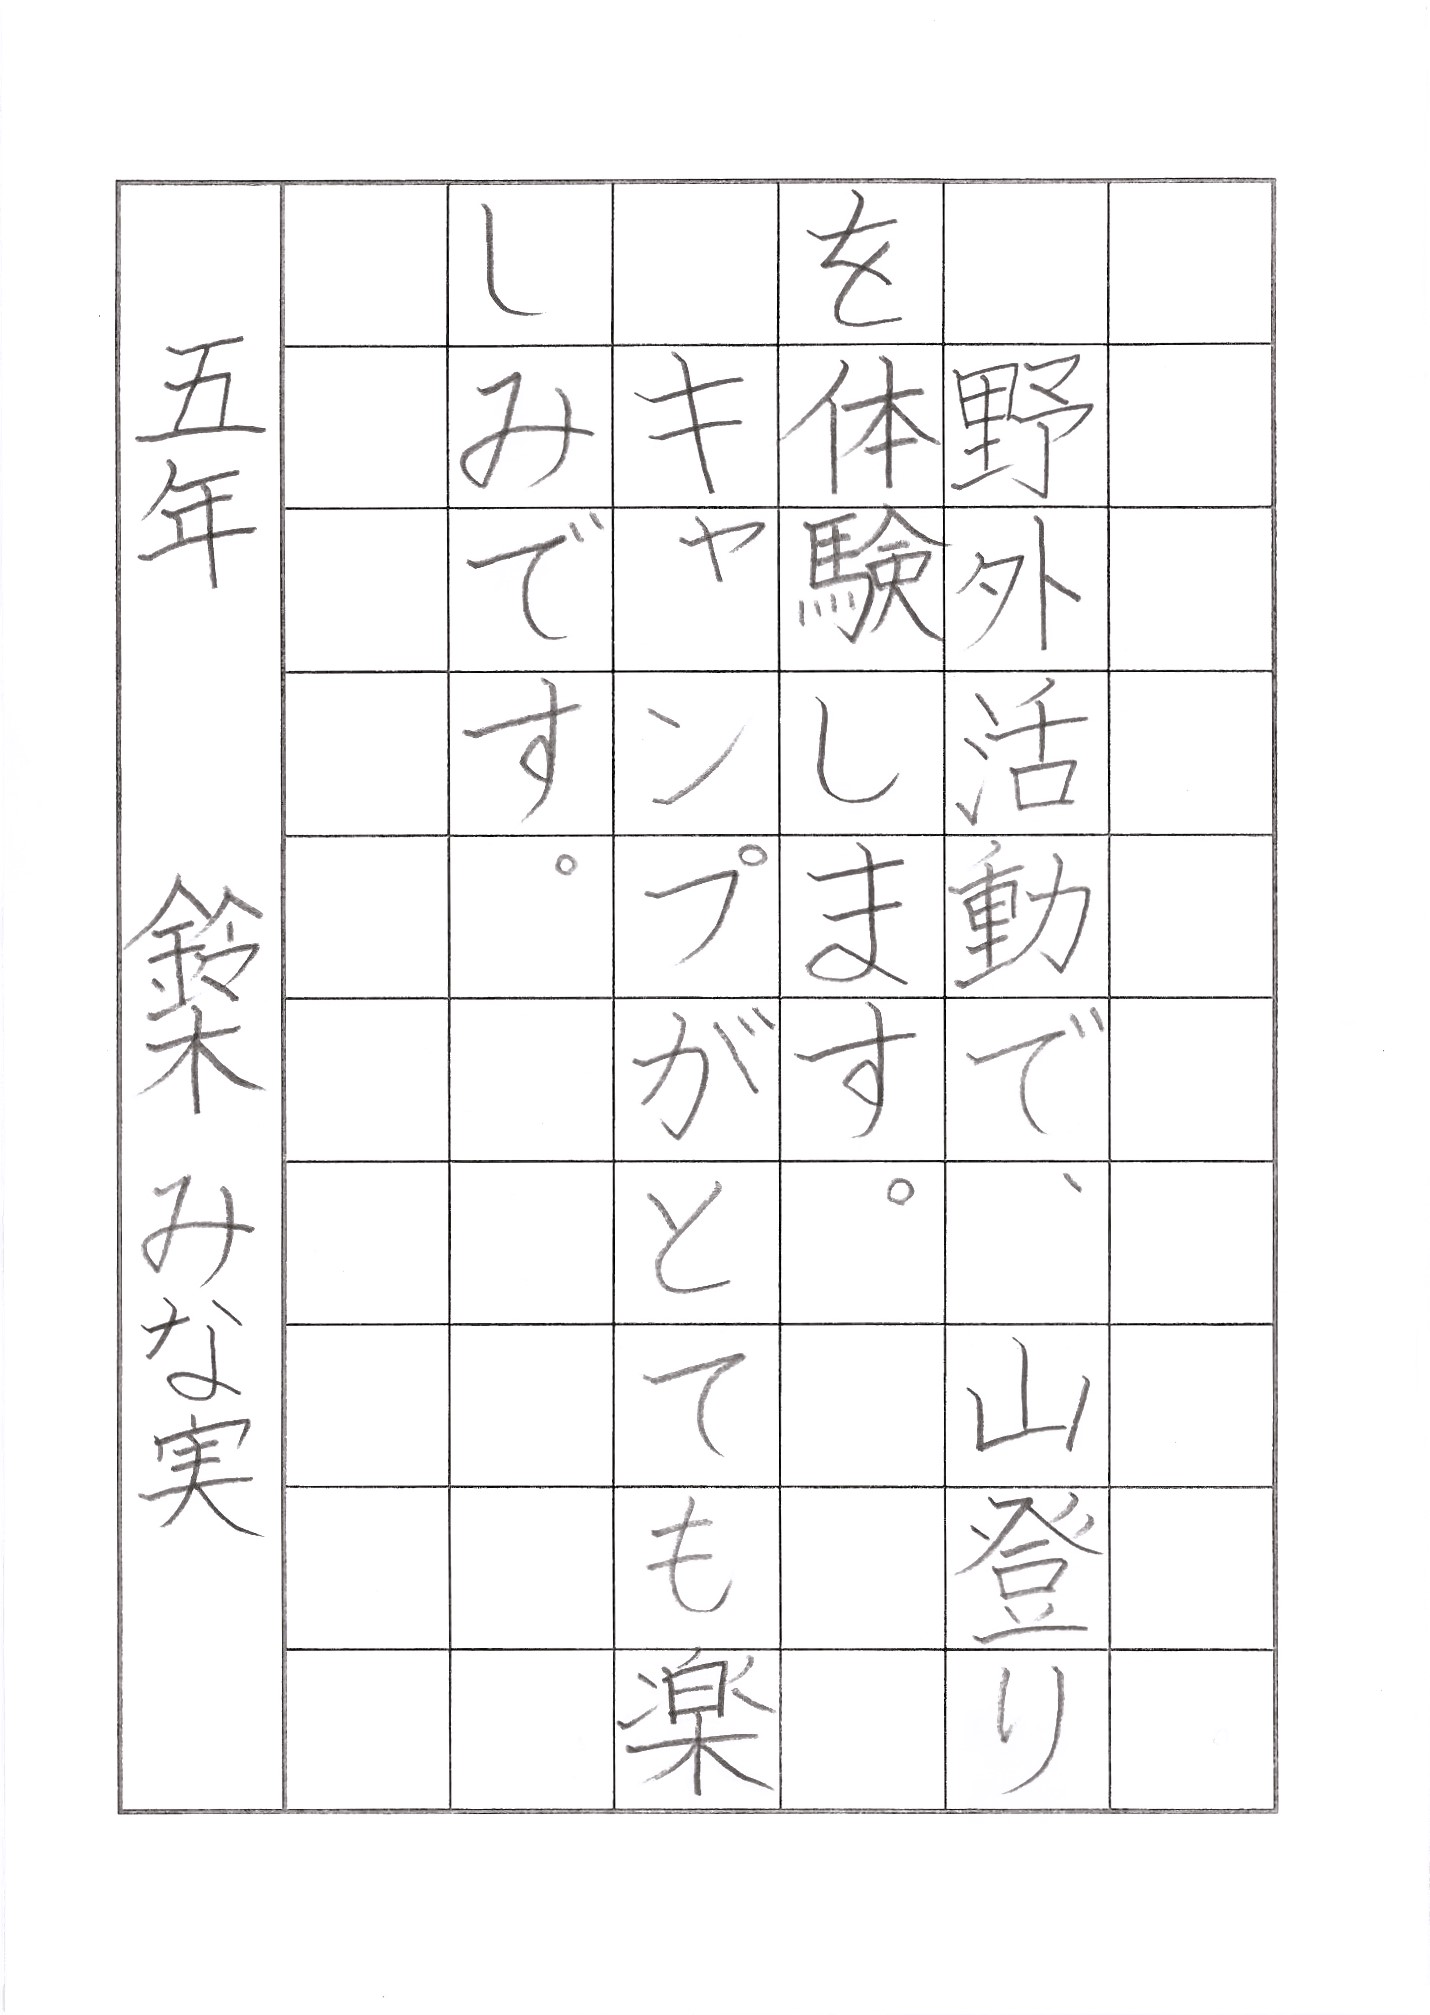 野外活動で、山登り
を体験します。
キャンプがとても楽
しみです。
五年 鈴木みな実